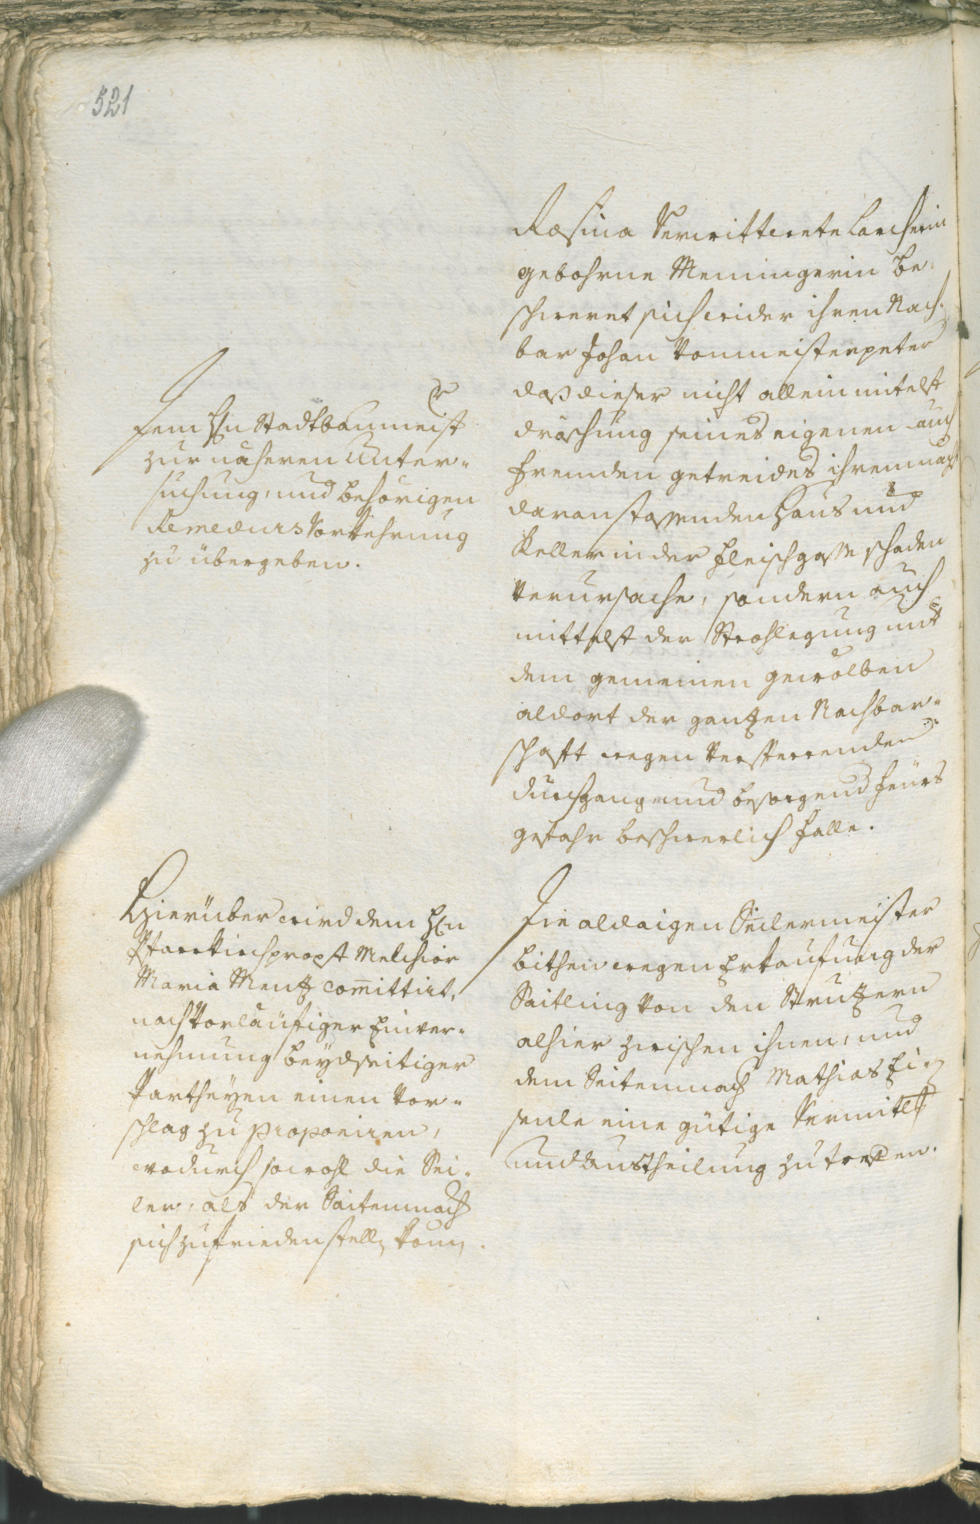 521
Rosina Verwittwete Larcherin
gebohrne Memingerin be¬
schweret sich wider ihren Nach¬
bar Johan Vonmeisterpeter
daß dieser nicht allein mitelst
dröschung seines eigenen auch
fremden getreides ihrem nächst
daran stossenden Haus und
Keller in der Fleischgasse schaden
verursache, sondern auch
mittelst der Strohlegung unter
dem gemeinen gewölben
aldort der gantzen Nachbar¬
schafft wegen Versperrenden
durchgang und besorgend feürs
gefahr beschwerlich falle.
Dem Hn Stadtbaumeister
zur näheren Unter¬
suchung, und behörigen
Remedurs Vorkehrung
zu übergeben.
Die aldaigen Seilermeister
bithen wegen Erkaufung der
Saitling von den Metzgern
alhier zwischen ihnen, und
dem Seitenmach Mathias Ei¬
senle eine gütige Vermitl
und Austheilung zu treffen.
Hierüber wird dem Hn
Pfarrkirchpropst Melchior
Maria Mentz committirt,
nach Vorläufiger Einver¬
nehmung beydseitiger
Partheyen einen Vor¬
schlag zu proponiren,
wodurch sowohl die Sei¬
ler, als der Saitenmach
sich zufrieden stellen könne.